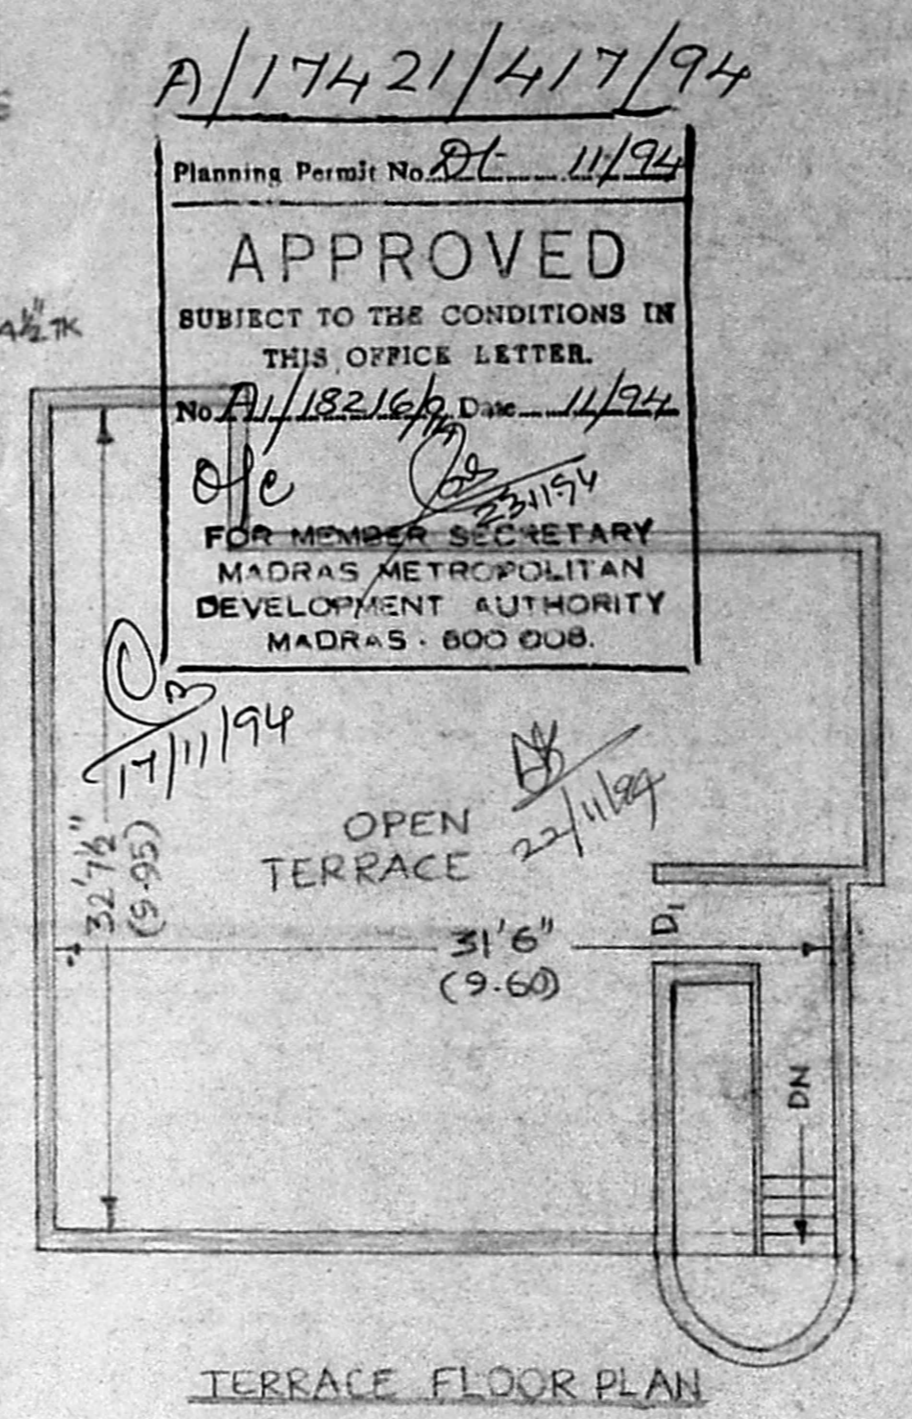 A/17421/417/94
Planning Permit No. Dt 11/94
APPROVED
SUBJECT TO THE CONDITIONS IN
THIS OFFICE LETTER.
No A1/18216/94 Date 11/94
4½" TK
o/c
23.11.94
FOR MEMBER SECRETARY
MADRAS METROPOLITAN
DEVELOPMENT AUTHORITY
MADRAS - 600 008.
17/11/94
22/11/94
OPEN
TERRACE
32'7½"
(9.95)
D1
31'6"
(9.60)
DN
TERRACE FLOOR PLAN